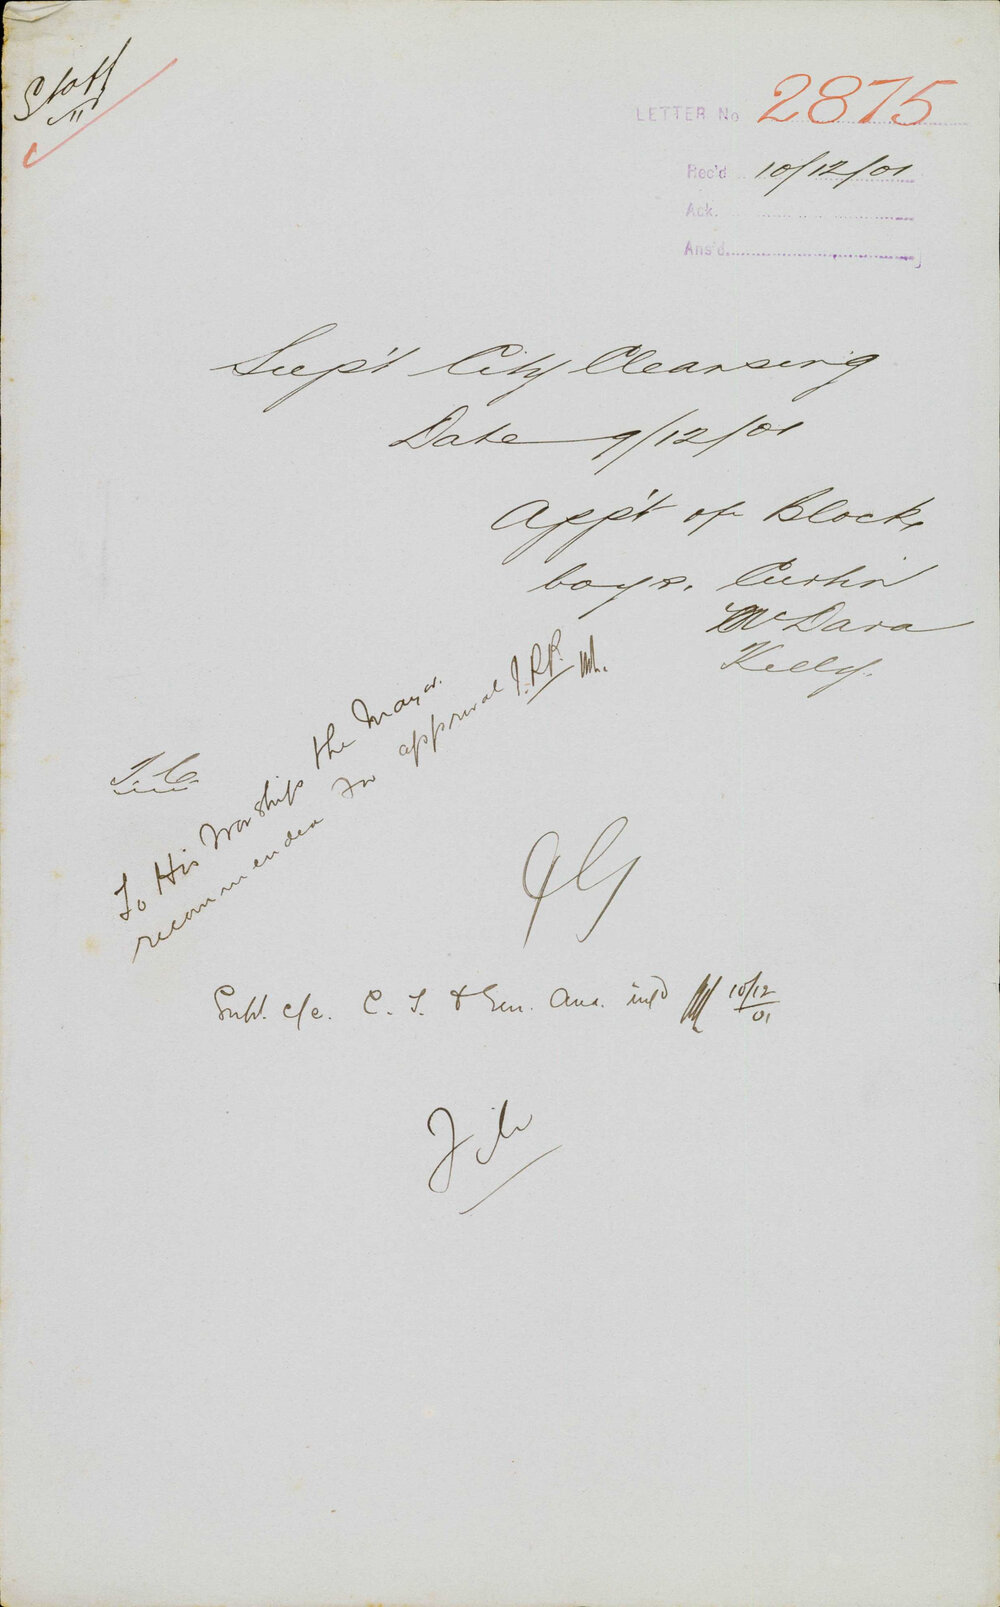 Staff
LETTER No 2875
Rec'd 10/12/01
Ack.
Ans'd
Sup't City Cleansing
Date 9/12/01
App't of Block
boys. Curtin
McDara
Kelly.
T.C.
To His Worship the Mayor.
recommended for approval J.R.P.
JG
Supt. c/c. C. T. & Gen. Aud. inf'd 10/12/01
File